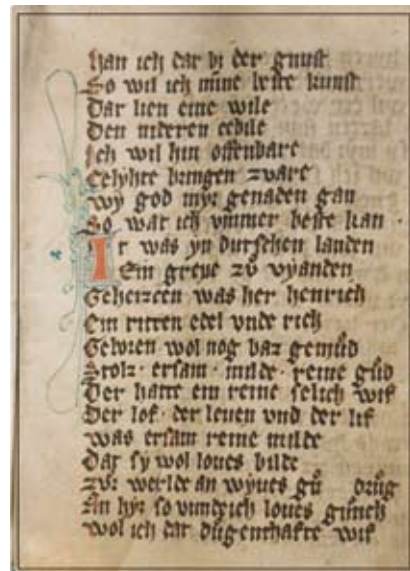 han ich dar bi der gunst
So wil ich mine beste kunst
Dar lien eine wile
Den nideren
Ich wil hin offenbare
bringen zware
Wy god myr genaden gan
So war ich ymmer beste kan
Ir was yn dutschen landen
Ein greve zů vyanden
Geheizeen was her henrich
Ein ritter edel unde rich
Geboren wol nog baz gemůd
Stolz · ersam · milde · reine gůd
Der hatte ein reine selich wif
Der lof · der leuen vnd der lif
was ersam reine milde
Dar sy wol loues bilde
zůr werlde an wyues gů drůg
An hyr so vunde ich loues
wol ich dat dugenthafte wif